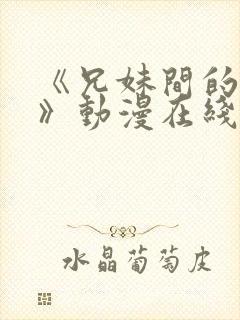 《兄妹間的
》動漫在綫
水晶葡萄皮